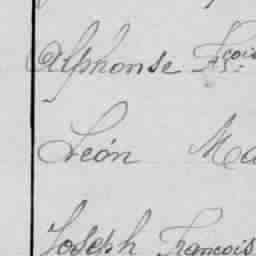 Alphonse Fçois
Léon Ma
Joseph François